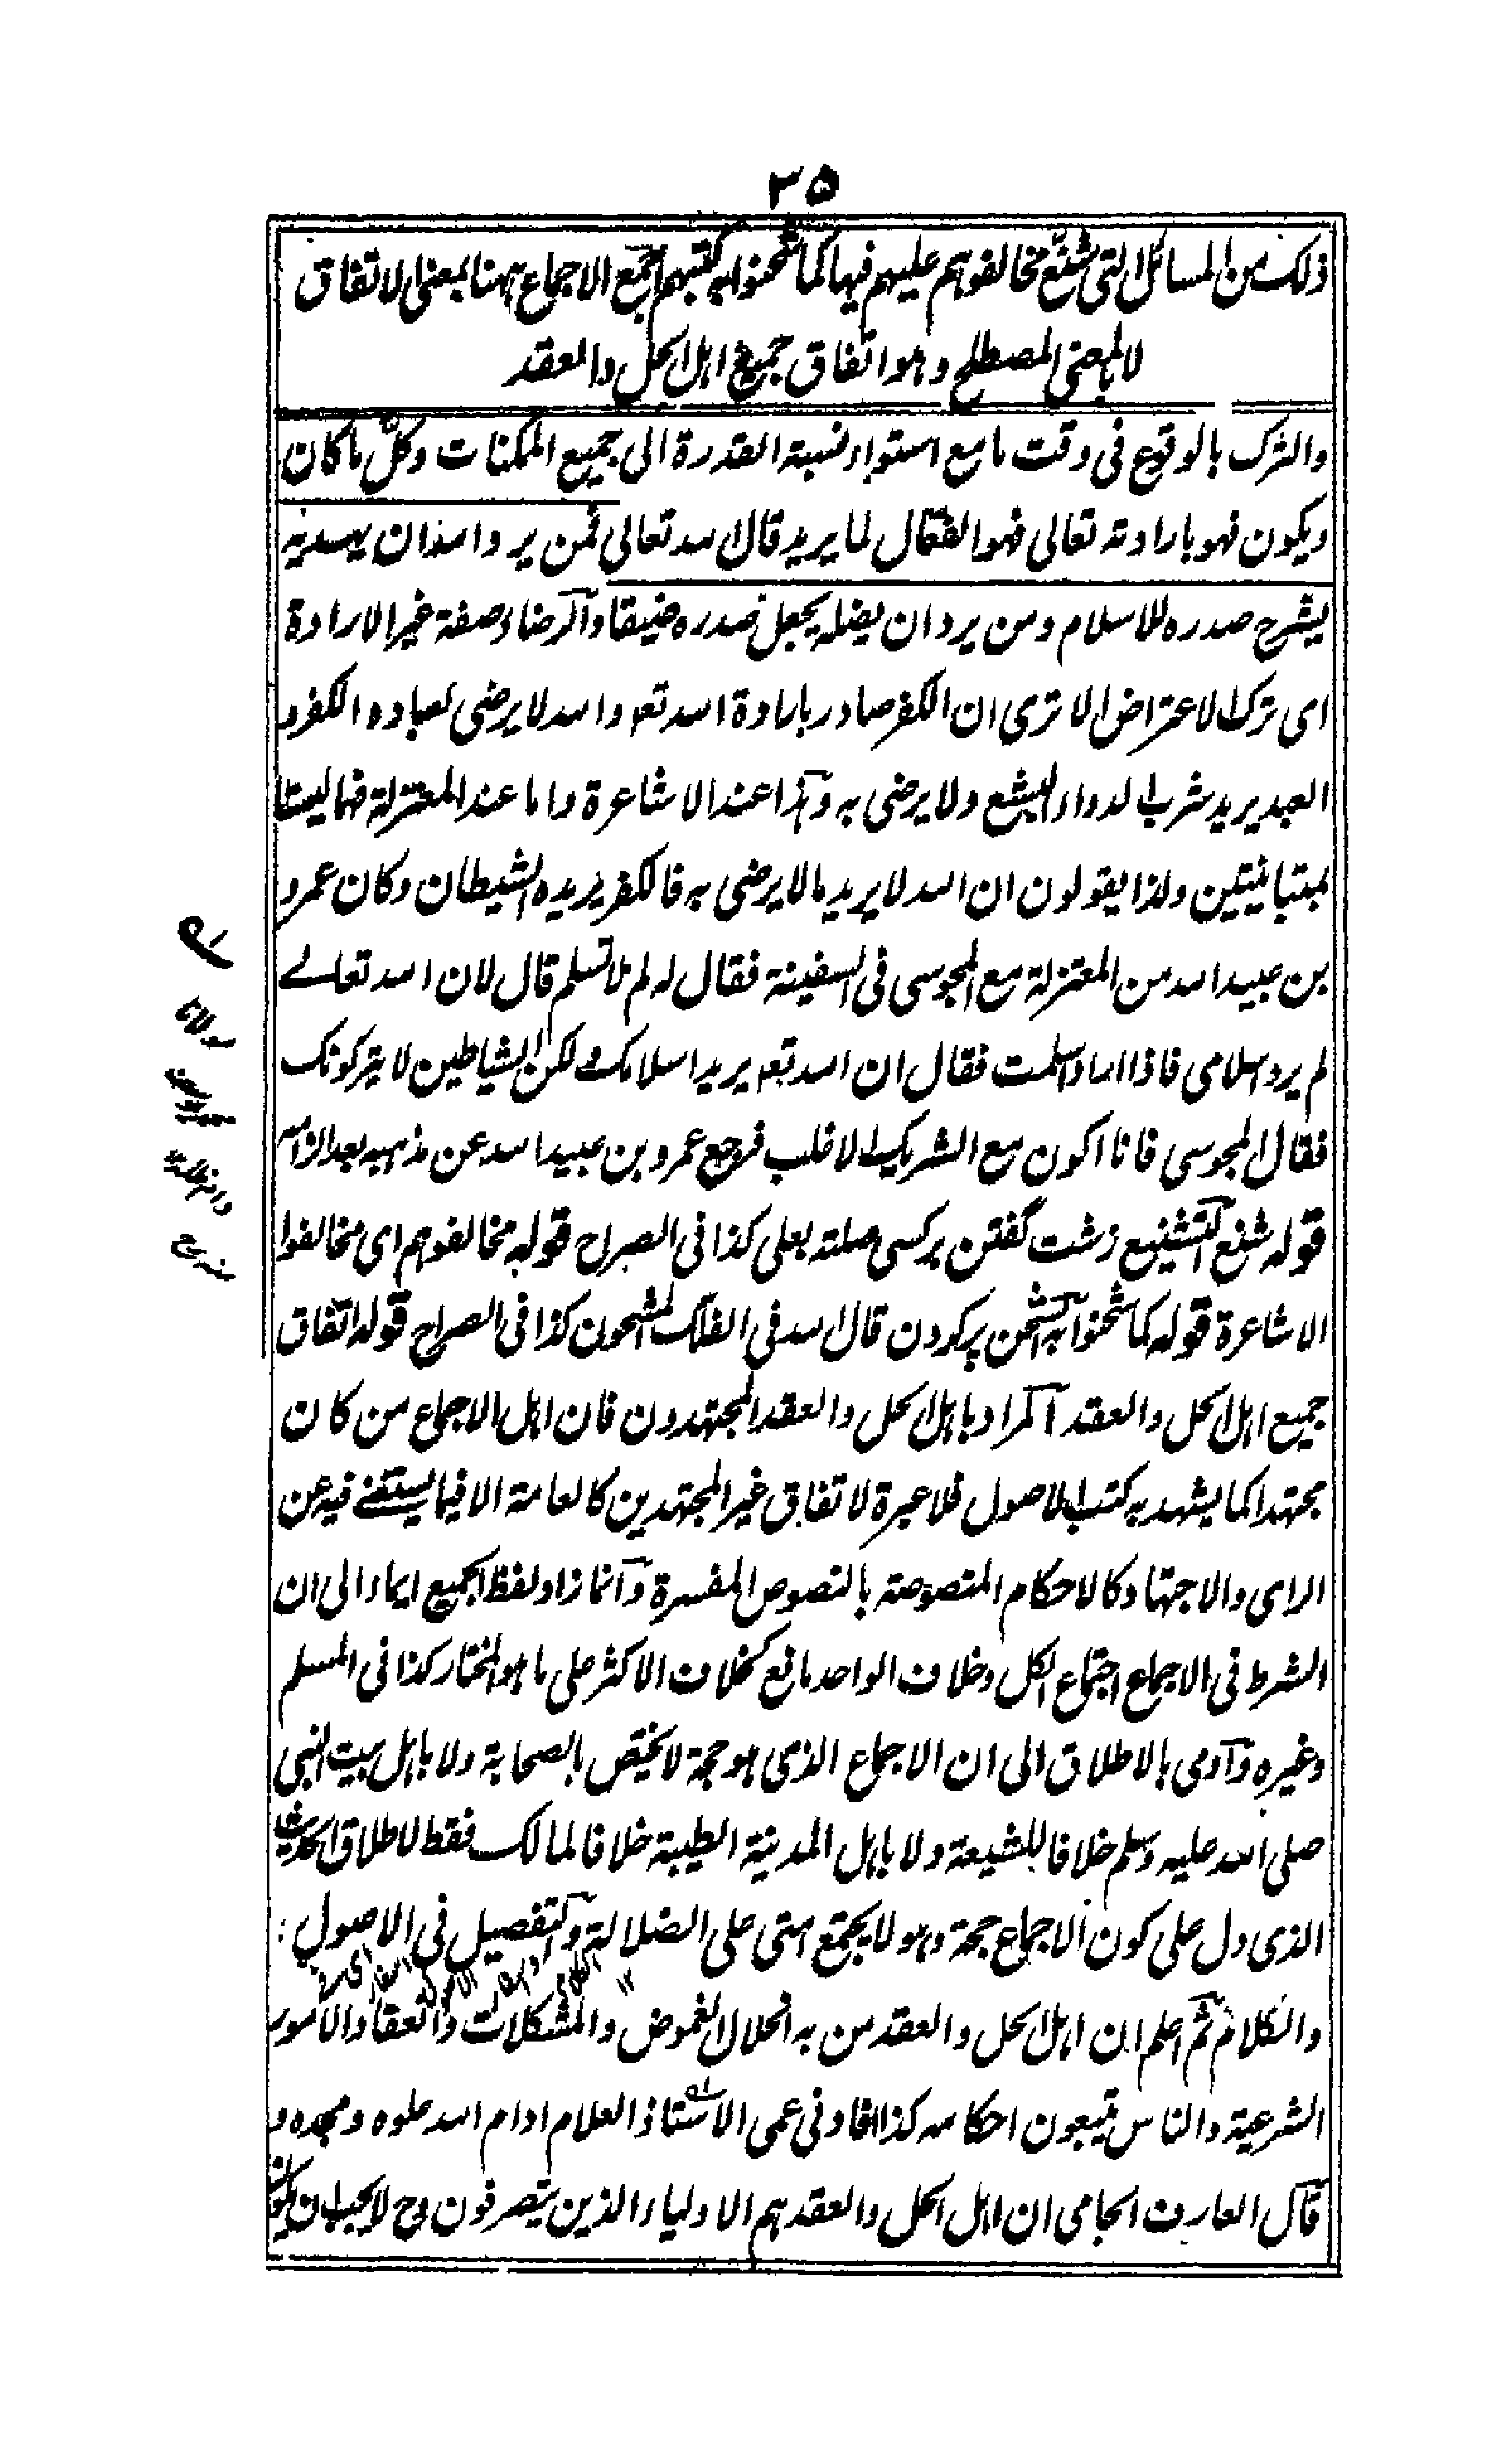 ٣٥
ذلك من المسائل التى شنّع مخالفوهم عليهم فيها كما شحنوا به كتبهم اجمع الاجماع ههنا بمعنى الاتفاق
لا بالمعنى المصطلح وهو اتفاق جميع اهل الحل والعقد
والترك بالوقوع فى وقت ما مع استواء نسبة القدرة الى جميع الممكنات وكل ما كان
ويكون فهو بارادته تعالى فهو الفعّال لما يريد قال الله تعالى فمن يرد الله ان يهديه
يشرح صدره للاسلام ومن يرد ان يضله يجعل صدره ضيقا والرضاء صفة غير الارادة
اى ترك الاعتراض الا ترى ان الكفر صادر بارادة الله تعه والله لا يرضى لعباده الكفر و
العبد يريد شرب الدواء البشع ولا يرضى به وهذا عند الاشاعرة واما عند المعتزلة فهما ليستا
بمتباينتين ولذا يقولون ان الله لا يريد ما لا يرضى به فالكفر يريده الشيطان وكان عمرو
بن عبيد الله من المعتزلة مع المجوسى فى السفينة فقال له لم لا تسلم قال لان الله تعالے
لم يرد اسلامى فاذا اراد اسلمت فقال ان الله تعه يريد اسلامك ولكن الشياطين لا يتركونك
فقال المجوسى فانا اكون مع الشريك الاغلب فرجع عمرو بن عبيد الله عن مذهبه بعد الزامه
قوله شنع التشنيع زشت گفتن بركسى صلته بعلى كذا فى الصراح قوله مخالفوهم اى مخالفوا
الاشاعرة قوله كما شحنوا به الشحن پر كردن قال الله فى الفلك المشحون كذا فى الصراح قوله اتفاق
جميع اهل الحل والعقد المراد باهل الحل والعقد المجتهدون فان اهل الاجماع من كان
مجتهدا كما يشهد به كتب الاصول فلا عبرة لاتفاق غير المجتهدين كالعامة الا فيما يستغنے فيه عن
الراى والاجتهاد كالاحكام المنصوصة بالنصوص المفسرة وانما زاد لفظ الجميع ايماء الى ان
الشرط فى الاجماع اجتماع الكل وخلاف الواحد مانع كخلاف الاكثر على ما هو المختار كذا فى المسلم
وغيره واومى بالاطلاق الى ان الاجماع الذى هو حجة لا يختص بالصحابة ولا باهل بيت النبى
صلى الله عليه وسلم خلافا للشيعة ولا باهل المدينة الطيبة خلافا لمالك فقط لاطلاق الحديث
الذى دل على كون الاجماع حجة وهو لا يجتمع امتى على الضلالة والتفصيل فى الاصول
والكلام ثم اعلم ان اهل الحل والعقد من به انحلال الغموض والمشكلات وانعقاد الامور
الشرعية والناس يتبعون احكامه كذا افادنى عمى الاستاذ العلام ادام الله علوه ومجده و
قال العارف الجامى ان اهل الحل والعقد هم الاولياء الذين يتصرفون وح لا يجب ان يكون